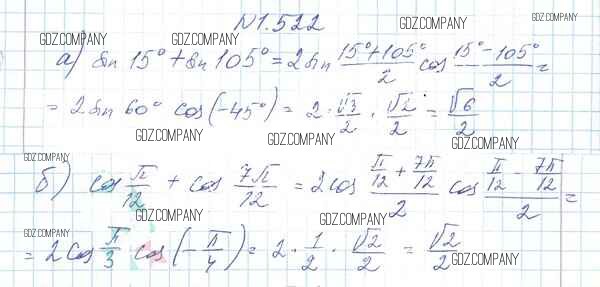 N 1.522
GDZ.COMPANY GDZ.COMPANY GDZ.COMPANY GDZ.COMPANY
а) sin 15° + sin 105° = 2 sin (15°+105°)/2 cos (15°-105°)/2 =
GDZ.COMPANY GDZ.COMPANY GDZ.COMPANY
= 2 sin 60° cos(-45°) = 2 · √3/2 · √2/2 = √6/2
GDZ.COMPANY GDZ.COMPANY GDZ.COMPANY
GDZ.COMPANY GDZ.COMPANY GDZ.COMPANY
б) cos π/12 + cos 7π/12 = 2 cos (π/12 + 7π/12)/2 cos (π/12 - 7π/12)/2 =
GDZ.COMPANY GDZ.COMPANY GDZ.COMPANY
= 2 cos π/3 cos(-π/4) = 2 · 1/2 · √2/2 = √2/2
GDZ.COMPANY GDZ.COMPANY